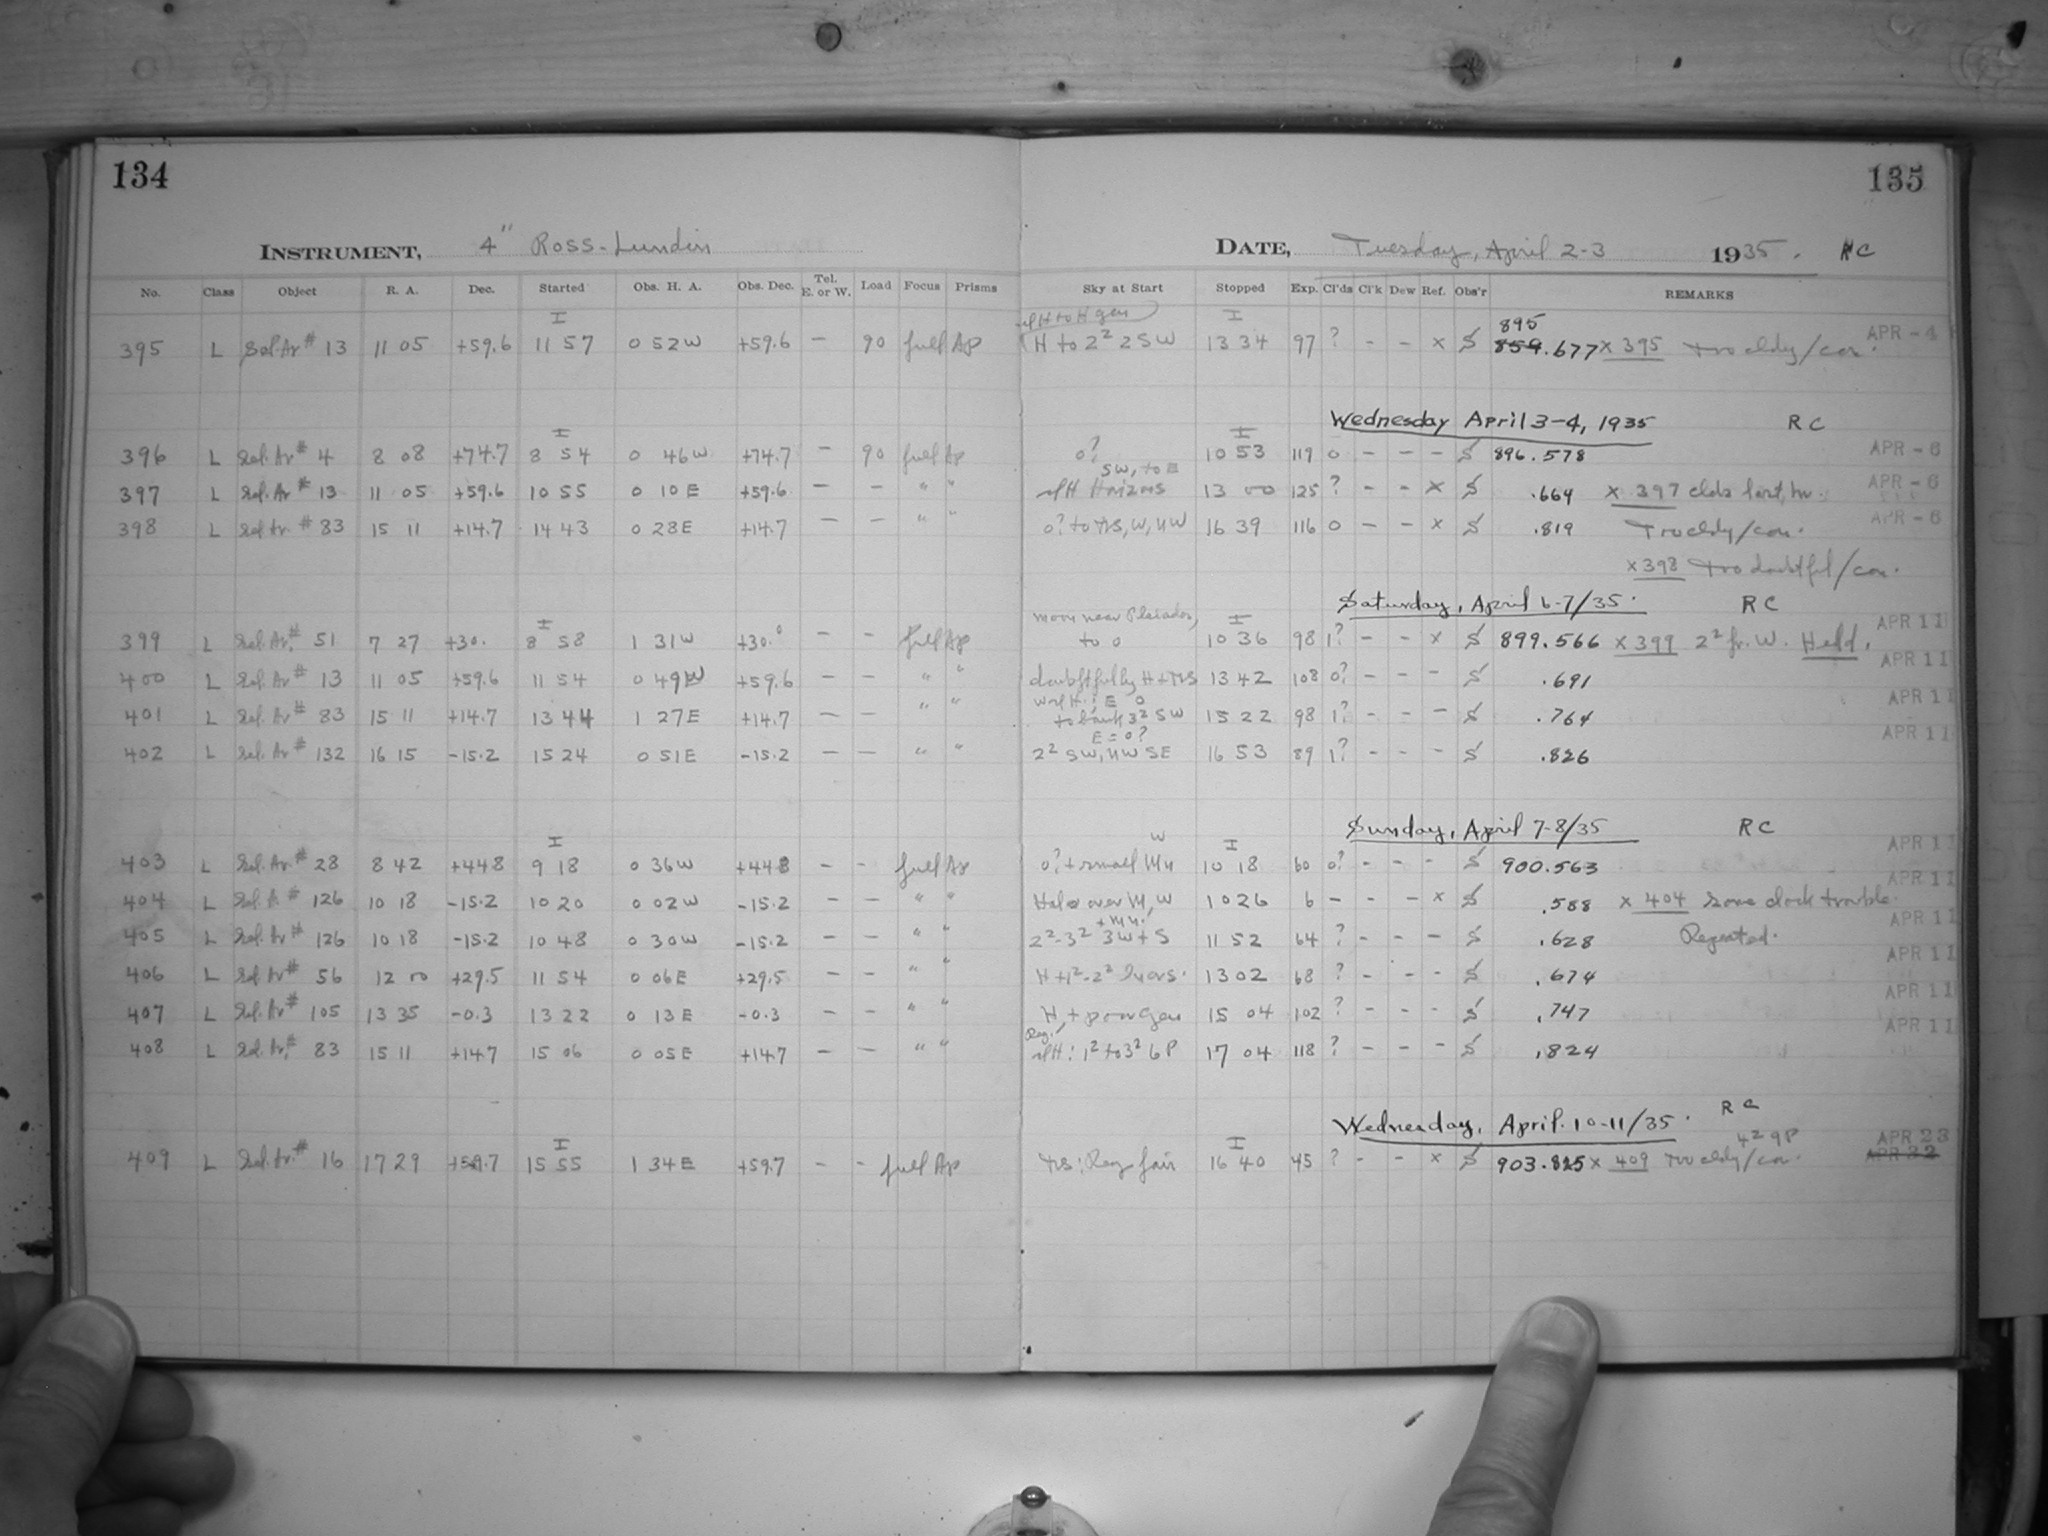 134
135
INSTRUMENT, 4" Ross-Lundin
DATE, Tuesday, April 2-3 1935. RC
No. Class Object R. A. Dec. Started Obs. H. A. Obs. Dec. Tel. E. or W. Load Focus Prisms Sky at Start Stopped Exp. Cl'ds Cl'k Dew Ref. Obs'r REMARKS
I I 895
395 L Sel. Ar # 13 11 05 +59.6 11 57 0 52 W +59.6 - 90 full Ap H to 2² 2 SW 13 34 97 ? - - x S 859.677 x 395 too cldy/con. APR -4
Wednesday April 3-4, 1935 RC
I I
396 L Sel. Ar # 4 8 08 +74.7 8 54 0 46 W +74.7 - 90 full Ap 0? 10 53 119 0 - - - S 896.578 APR -6
SW, to E
397 L Sel. Ar # 13 11 05 +59.6 10 55 0 10 E +59.6 - - " " 13 00 125 ? - - x S .664 x 397 clds last, hr. APR -6
398 L Sel. Ar. # 83 15 11 +14.7 14 43 0 28 E +14.7 - - " " 0? to W, NW 16 39 116 0 - - x S .819 Too cldy/con. APR -6
x 398 too doubtful/con.
Saturday, April 6-7/35. RC
moon near Pleiades,
I I
399 L Sel. Ar. # 51 7 27 +30. 8 58 1 31 W +30.0 - - full Ap to 0 10 36 98 1? - - x S 899.566 x 399 2² fr. W. Held. APR 11
400 L Sel. Ar # 13 11 05 +59.6 11 54 0 49 W +59.6 - - " " doubtfully H 13 42 108 0? - - - S .691 APR 11
401 L Sel. Ar # 83 15 11 +14.7 13 44 1 27 E +14.7 - - " " to bank 3² SW 15 22 98 1? - - - S .764 APR 11
E = 0?
402 L Sel. Ar # 132 16 15 -15.2 15 24 0 51 E -15.2 - - " " 2² SW, NW SE 16 53 89 1? - - - S .826 APR 11
Sunday, April 7-8/35 RC
I W I
403 L Sel. Ar. # 28 8 42 +44.8 9 18 0 36 W +44.8 - - full Ap 0? + small 10 18 60 0? - - - S 900.563 APR 11
404 L Sel. A # 126 10 18 -15.2 10 20 0 02 W -15.2 - - " " Halo over M, W 10 26 6 - - - x S .588 x 404 some clock trouble. APR 11
405 L Sel. Ar # 126 10 18 -15.2 10 48 0 30 W -15.2 - - " " 2²-3² 3 W + S 11 52 64 ? - - - S .628 Repeated. APR 11
406 L Sel. Ar # 56 12 00 +29.5 11 54 0 06 E +29.5 - - " " H + 1²-2² 13 02 68 ? - - - S .674 APR 11
407 L Sel. Ar # 105 13 35 -0.3 13 22 0 13 E -0.3 - - " " H, + poor gen 15 04 102 ? - - - S .747 APR 11
408 L Sel. Ar. # 83 15 11 +14.7 15 06 0 05 E +14.7 - - " " 1² to 3² 6 P 17 04 118 ? - - - S .824 APR 11
Wednesday, April. 10-11/35. RC
I I 4² 9P APR 23
409 L Sel. Ar. # 16 17 29 +59.7 15 55 1 34 E +59.7 - - full Ap fair 16 40 45 ? - - x S 903.815 x 409 too cldy/con. APR 22